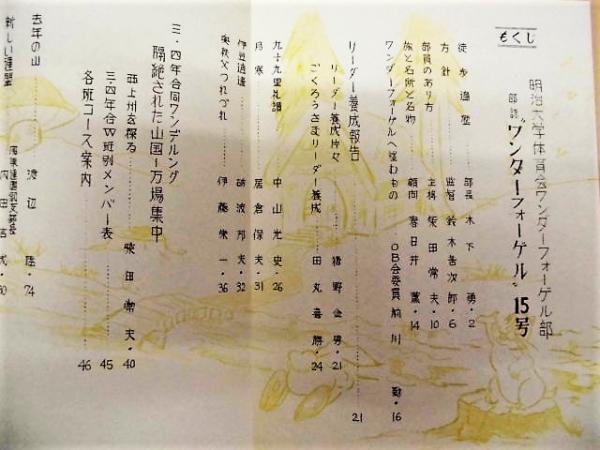 もくじ
明治大学体育会ワンダーフォーゲル部
部誌 "ワンダーフォーゲル" 15号
徒歩随想 部長 木下 勇・2
方針 監督 鈴木善次郎・6
部員のあり方 主将 柴田常夫・10
旅と名所と名物 顧問 春日井薫・14
ワンダーフォーゲルへ望むもの OB会委員 前川 勤・16
リーダー養成報告 21
リーダー養成片々 21
ごくろうさまリーダー養成 田丸喜勝・24
九十九里礼讃 中山光史・26
房寒 居倉保夫・31
伊豆逍遥 砺波邦夫・32
奥秩父つれづれ 伊藤栄一・36
三・四年合同ワンデルング
隔絶された山国-万場集中
西上州を探る 柴田常夫・40
三・四年合W班別メンバー表 45
各班コース案内 46
去年の山 渡辺 隆・74
新しい連盟